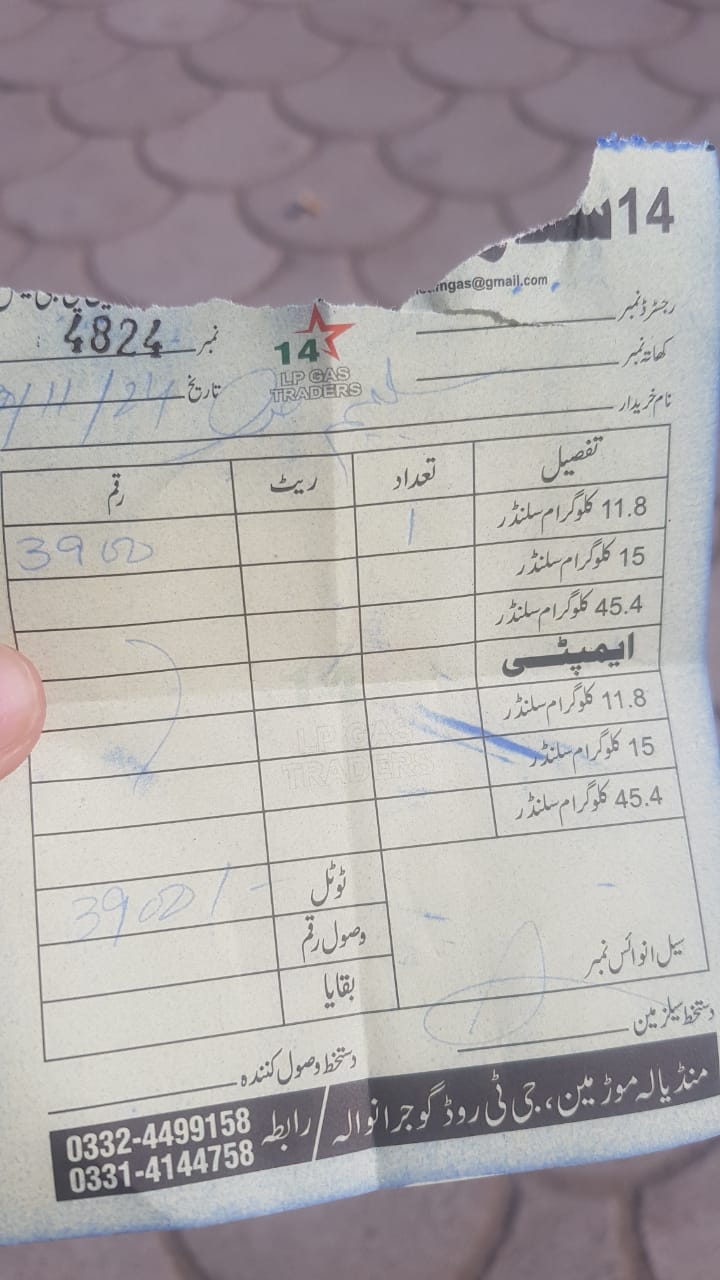 14
ngas@gmail.com
رجسٹرڈ نمبر
نمبر 4824
کھاتہ نمبر
14
LP GAS
TRADERS
تاریخ /11/24
نام خریدار سلیم
تفصیل تعداد ریٹ رقم
11.8 کلوگرام سلنڈر 1 3900
15 کلوگرام سلنڈر
45.4 کلوگرام سلنڈر
ایمپٹی
11.8 کلوگرام سلنڈر
15 کلوگرام سلنڈر
45.4 کلوگرام سلنڈر
LP GAS
TRADERS
ٹوٹل 3900/-
وصول رقم
بقایا
سیل انوائس نمبر
دستخط سیلز مین
دستخط وصول کنندہ
منڈیالہ موڑ مین، جی ٹی روڈ گوجرانوالہ / رابطہ
0332-4499158
0331-4144758